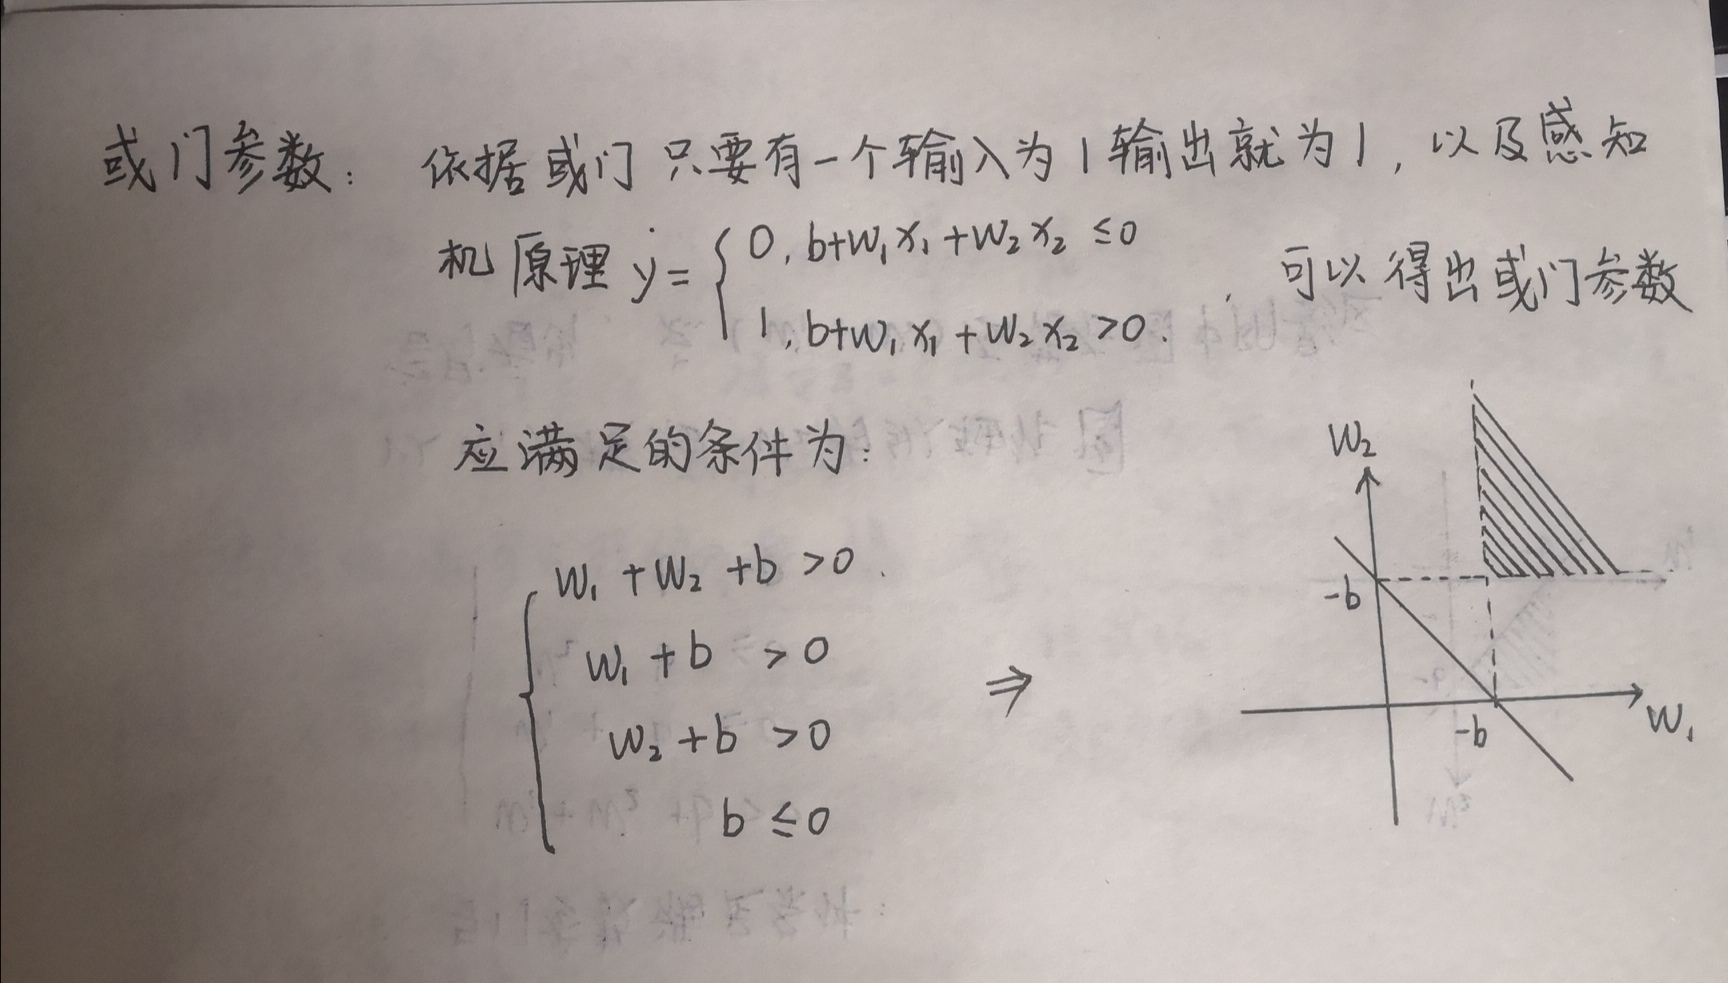 或门参数: 依据或门只要有一个输入为1输出就为1, 以及感知
机原理 y = { 0, b+w₁x₁+w₂x₂ ≤0
1, b+w₁x₁+w₂x₂ >0. , 可以得出或门参数
应满足的条件为:
w₁ + w₂ + b >0.
w₁ + b >0
w₂ + b >0
b ≤0
⇒
w₂
-b
-b
w₁